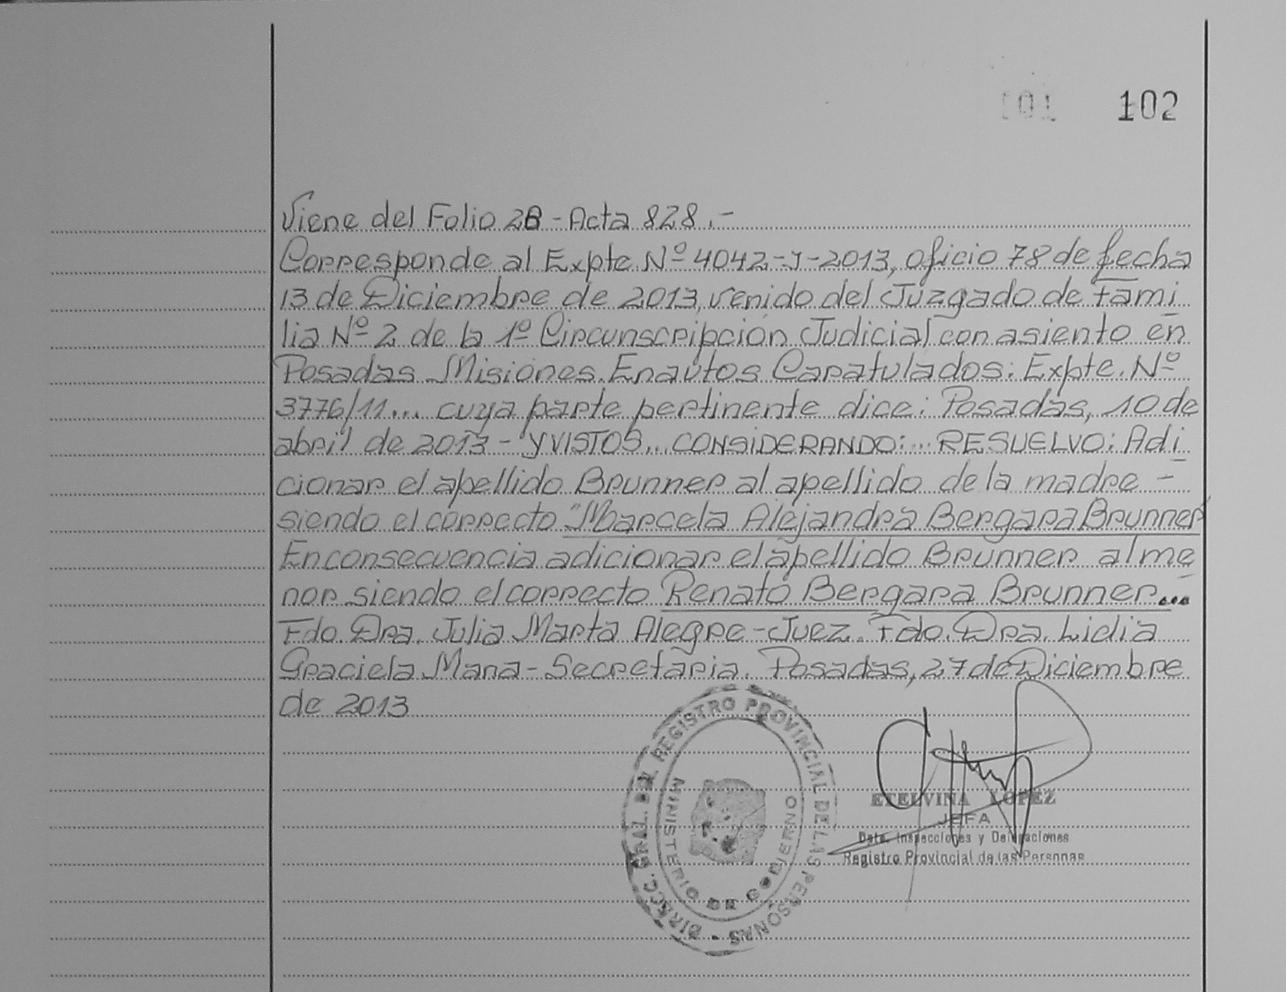 101 102
Viene del Folio 28 - Acta 828.-
Corresponde al Expte Nº 4042-J-2013, oficio 78 de fecha
13 de Diciembre de 2013, venido del Juzgado de Fami
lia Nº 2 de la 1º Circunscripción Judicial con asiento en
Posadas Misiones. En autos Caratulados: Expte. Nº
3776/11... cuya parte pertinente dice: Posadas, 10 de
abril de 2013 - Y VISTOS... CONSIDERANDO:... RESUELVO: Adi
cionar el apellido Brunner al apellido de la madre -
siendo el correcto "Marcela Alejandra Bergara Brunner
En consecuencia adicionar el apellido Brunner al me
nor siendo el correcto Renato Bergara Brunner...
Fdo. Dra. Julia Marta Alegre - Juez. Fdo. Dra. Lidia
Graciela Mana - Secretaria. Posadas, 27 de Diciembre
de 2013
DIRECC. GRAL. DEL REGISTRO PROVINCIAL DE LAS PERSONAS -
MINISTERIO DE GOBIERNO
ETELVINA LOPEZ
JEFA
Dpto. Inspecciones y Delegaciones
Registro Provincial de las Personas